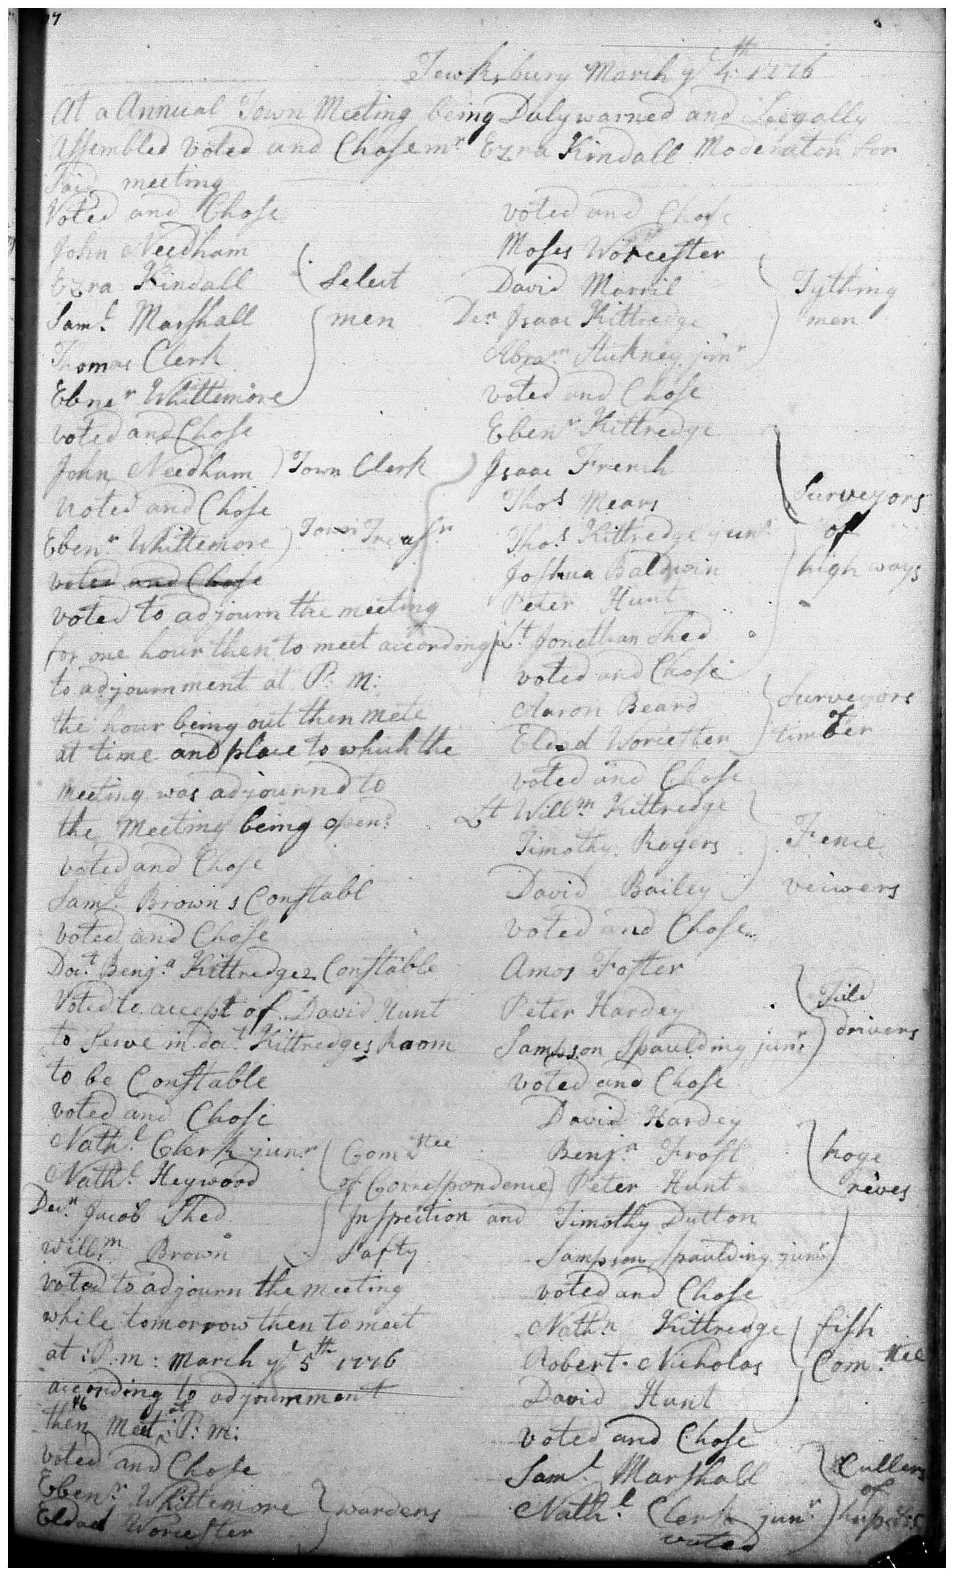 Tewksbury March ye 4th 1776
At a Annual Town Meeting being Duly warned and Leegally
Assembled voted and Chose mr Ezra Kindall Moderator for
Said meeting
Voted and Chose
John Needham
Ezra Kindall
Saml Marshall
Thomas Clerk
Ebner Whittemore
Select
men
voted and Chose
John Needham Town Clerk
Voted and Chose
Ebenr Whittemore Town Treasr
voted and Chose
voted to adjourn the meeting
for one hour then to meet according
to adjournment at P: M:
the hour being out then mete
at time and place to which the
meeting was adjournd to
the Meeting being opend
voted and Chose
Saml Brown s Constabl
voted and Chose
Doct Benja Kittredges Constable
Voted to accept of David Hunt
to Serve in doct Kittredges Raom
to be Constable
voted and Chose
Nathl Clerk junr
Nathl Heywood
Decn Jacob Shed
Willm Brown
Comttee
of Correspondence
Inspection and
Safty
voted to adjourn the meeting
while tomorrow then to meet
at : P:m: March ye 5th 1776
according to adjournment
then Meet at P: M:
voted and Chose
Ebenr Whittemore
Eldad Worcester
wardens
voted and Chose
Moses Worcester
David Merril
Den Isaac Kittredge
Abram Stickney junr
Tything
men
voted and Chose
Ebenr Kittredge
Isaac French
Thos Mears
Thos Kittredge junr
Joshua Baldwin
Peter Hunt
Lt Jonathan Shed
Surveyors
of
high ways
voted and Chose
Aaron Beard
Eldad Worcester
Surveyors
of
timber
voted and Chose
Lt Willm Kittredge
Timothy Rogers
David Bailey
Fence
veiwers
voted and Chose
Amos Foster
Peter Hardey
Sampson Spaulding junr
Feild
drivers
voted and Chose
David Hardey
Benja Frost
Peter Hunt
Timothy Dutton
Sampson Spaulding junr
hoge
reives
voted and Chose
Nathn Kittredge
Robert Nicholas
David Hunt
fish
Comttee
voted and Chose
Saml Marshall
Nathl Clerk junr
Cullers
of
voted